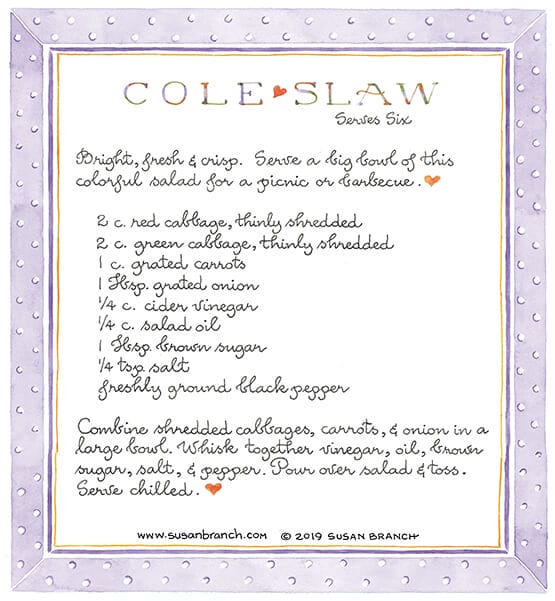 COLE SLAW
Serves Six
Bright, fresh & crisp. Serve a big bowl of this
colorful salad for a picnic or barbecue.
2 c. red cabbage, thinly shredded
2 c. green cabbage, thinly shredded
1 c. grated carrots
1 Tbsp. grated onion
1/4 c. cider vinegar
1/4 c. salad oil
1 Tbsp. brown sugar
1/4 tsp salt
freshly ground black pepper
Combine shredded cabbages, carrots, & onion in a
large bowl. Whisk together vinegar, oil, brown
sugar, salt, & pepper. Pour over salad & toss.
Serve chilled.
www.susanbranch.com © 2019 SUSAN BRANCH